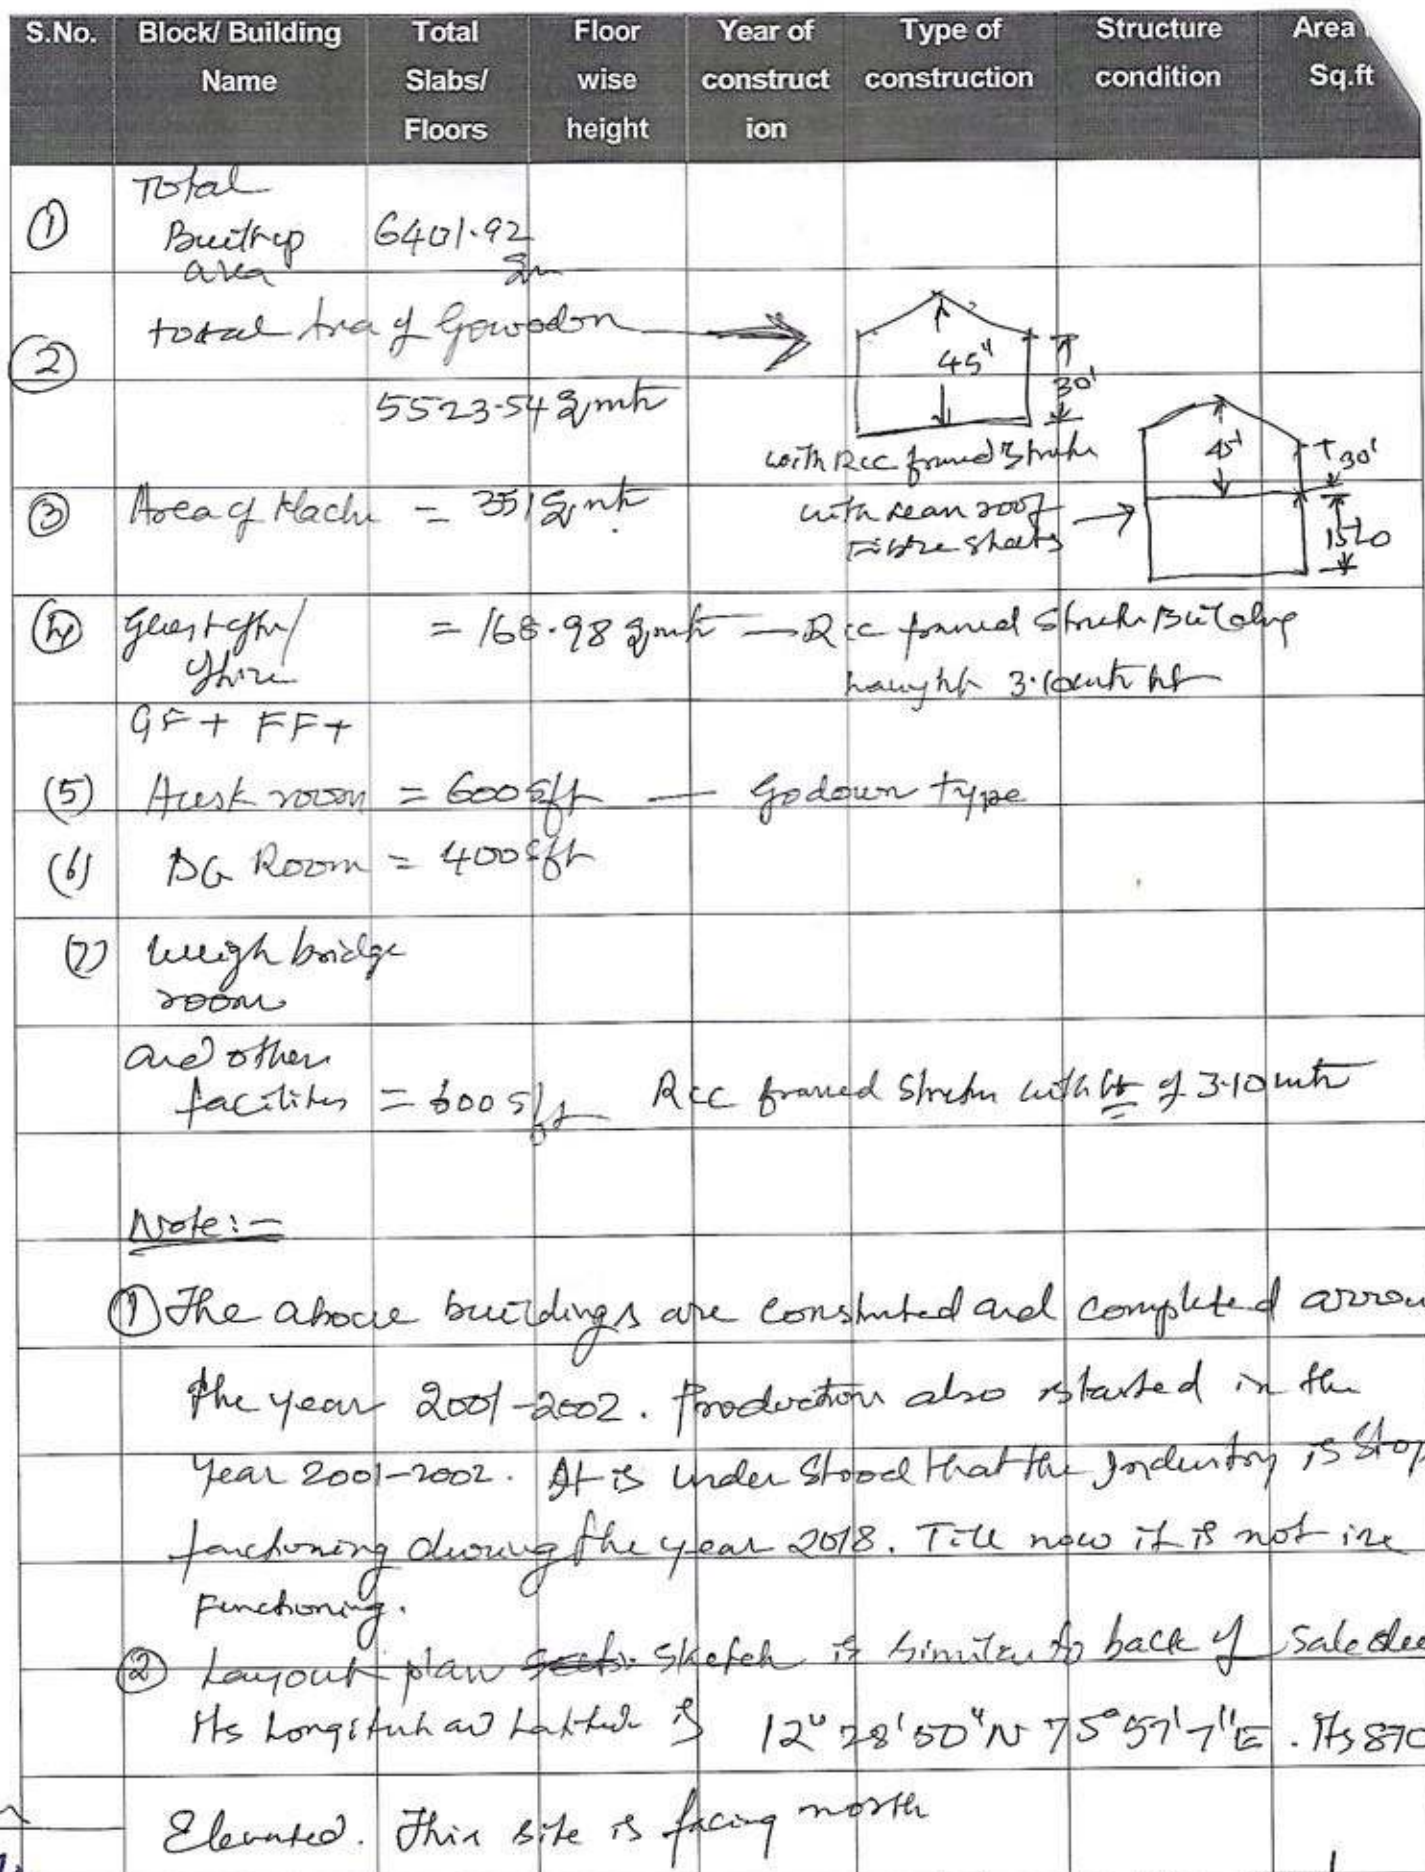 S.No. Block/ Building Name Total Slabs/ Floors Floor wise height Year of construct ion Type of construction Structure condition Area Sq.ft
① Total Builtup area 6401.92 Sm
② total Area of Gowodon
45" 30'
5523.54 Sqmtr
with Rcc framed Struture
45' 30'
15'-0
③ Area of = 351 Sqmtr with roof Fibre sheets
④ Guest = 168.98 Sqmtr — Rcc framed Structure Building
height 3.10mtr ht
GF + FF +
(5) room = 600 Sft — Godown type
(6) DG Room = 400 Sft
(7) Weigh bridge
room
and other
facilities = 600 Sft Rcc framed Structure with ht of 3.10 mtr
Note:-
① The above buildings are constructed and completed arrou
the year 2001-2002. Production also started in the
year 2001-2002. It is under stood that the Industry is stop
functioning during the year 2018. Till now it is not in
Functioning.
② Layout plan sketch is similar to back of sale dee
Its Longitude and Latitude is 12° 28' 50" N 75° 57' 7" E. Its 870
Elevated. This site is facing north